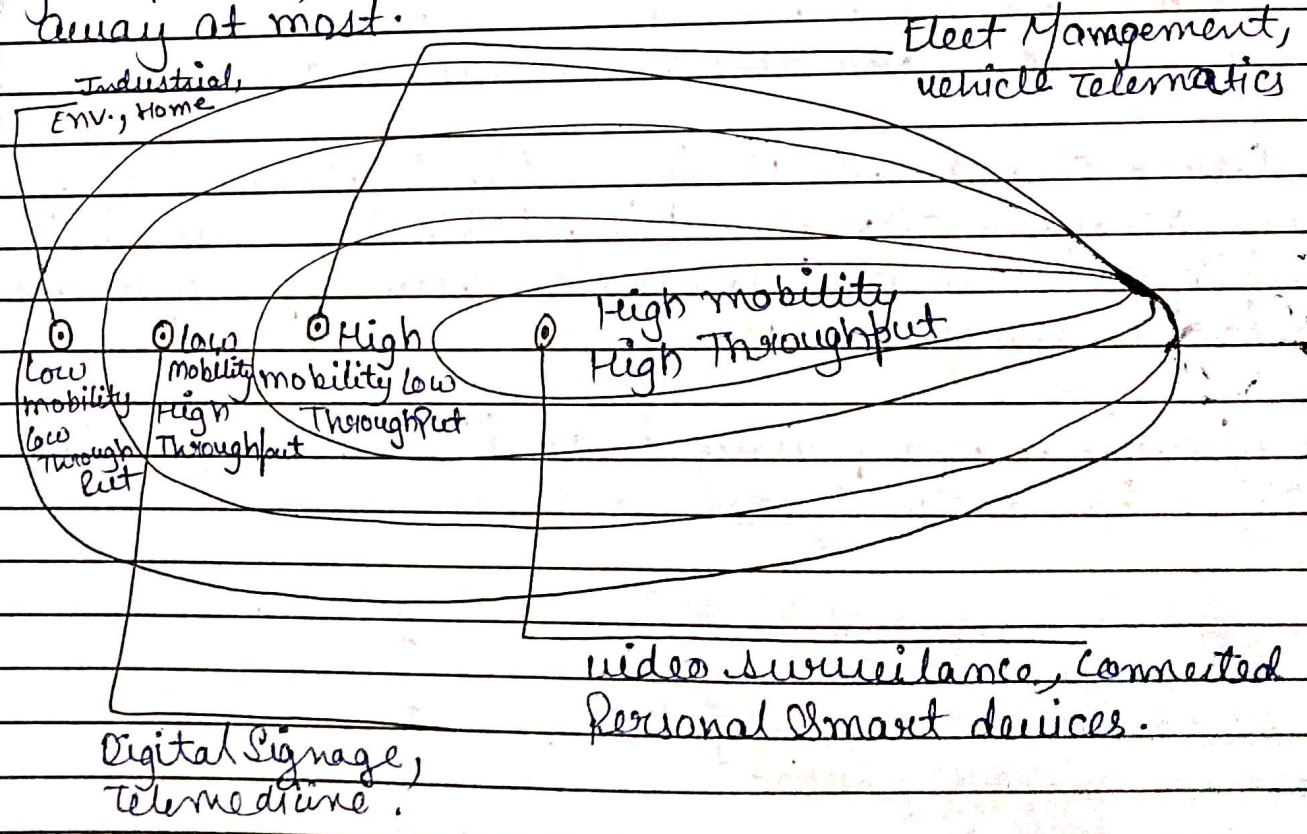 away at most.
Fleet Management,
vehicle Telematics
Industrial,
Env., Home
High mobility
High Throughput
Low
mobility
low
Through
Put
low
mobility
High
Throughput
High
mobility low
ThroughPut
video surveilance, Connected
Personal Smart devices.
Digital Signage,
Telemedicine.